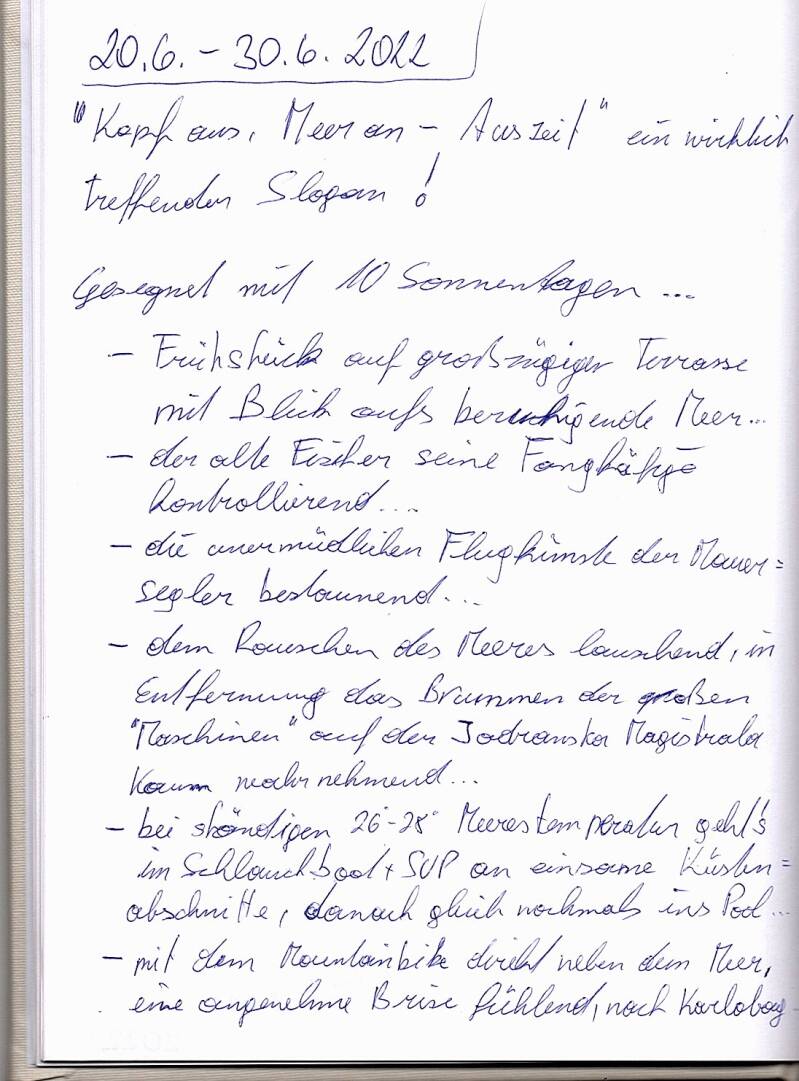 20.6. – 30.6. 2022
"Kopf aus, Meer an – Auszeit" ein wirklich
treffender Slogan!
Gesegnet mit 10 Sonnentagen ...
– Frühstück auf großzügiger Terrasse
mit Blick aufs beruhigende Meer...
– der alte Fischer seine Fangkäfige
kontrollierend...
– die unermüdlichen Flugkünste der Mauer=
segler bestaunend...
– dem Rauschen des Meeres lauschend, in
Entfernung das Brummen der großen
"Maschinen" auf der Jadranska Magistrala
kaum wahrnehmend...
– bei ständigen 26°-28° Meerestemperatur geht's
im Schlauchboot + SUP an einsame Küsten=
abschnitte, danach gleich nochmals ins Pool...
– mit dem Mountainbike direkt neben dem Meer,
eine angenehme Brise fühlend, nach Karlobag